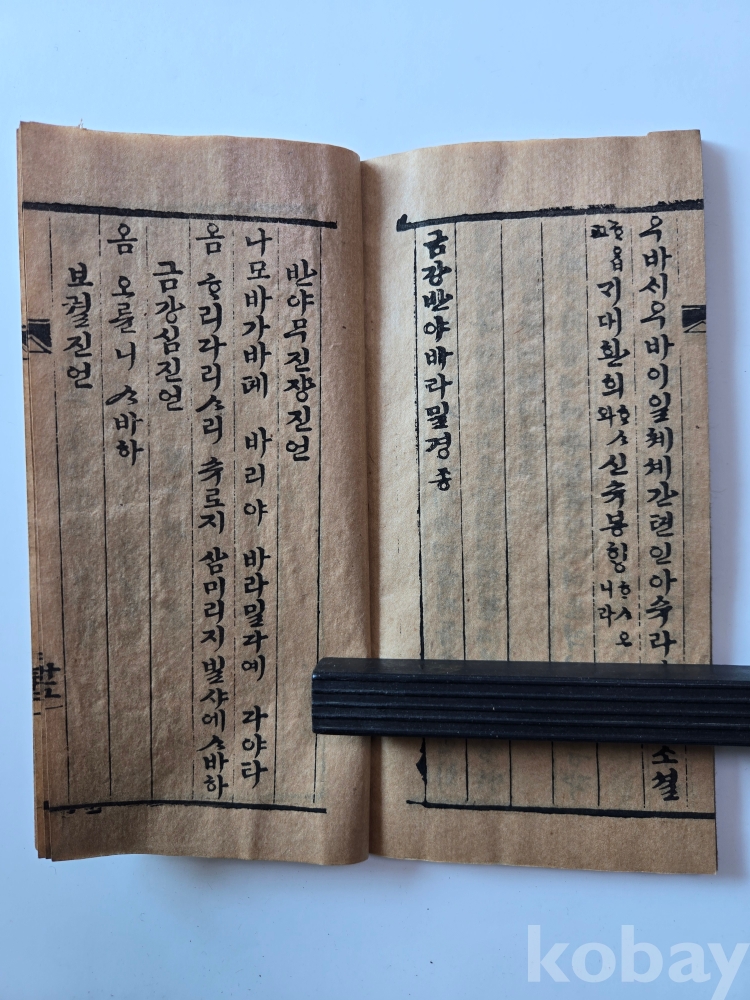 우바시우바이일체세간텬인아슈라 소셜
ᄒᆞ옵고 기대환희 ᄒᆞᄉᆞ와 신슈봉ᄒᆡᆼ ᄒᆞᄉᆞ오니라
금강반야바라밀경 종
반야무진쟝진언
나모바가바뎨 바리야 바라밀다예 다야타
옴 ᄒᆞ리다리ᄉᆞ리 슈로지 삼미리지 빌샤예 ᄉᆞ바하
금강심진언
옴 오륜니 ᄉᆞ바하
보궐진언
kobay